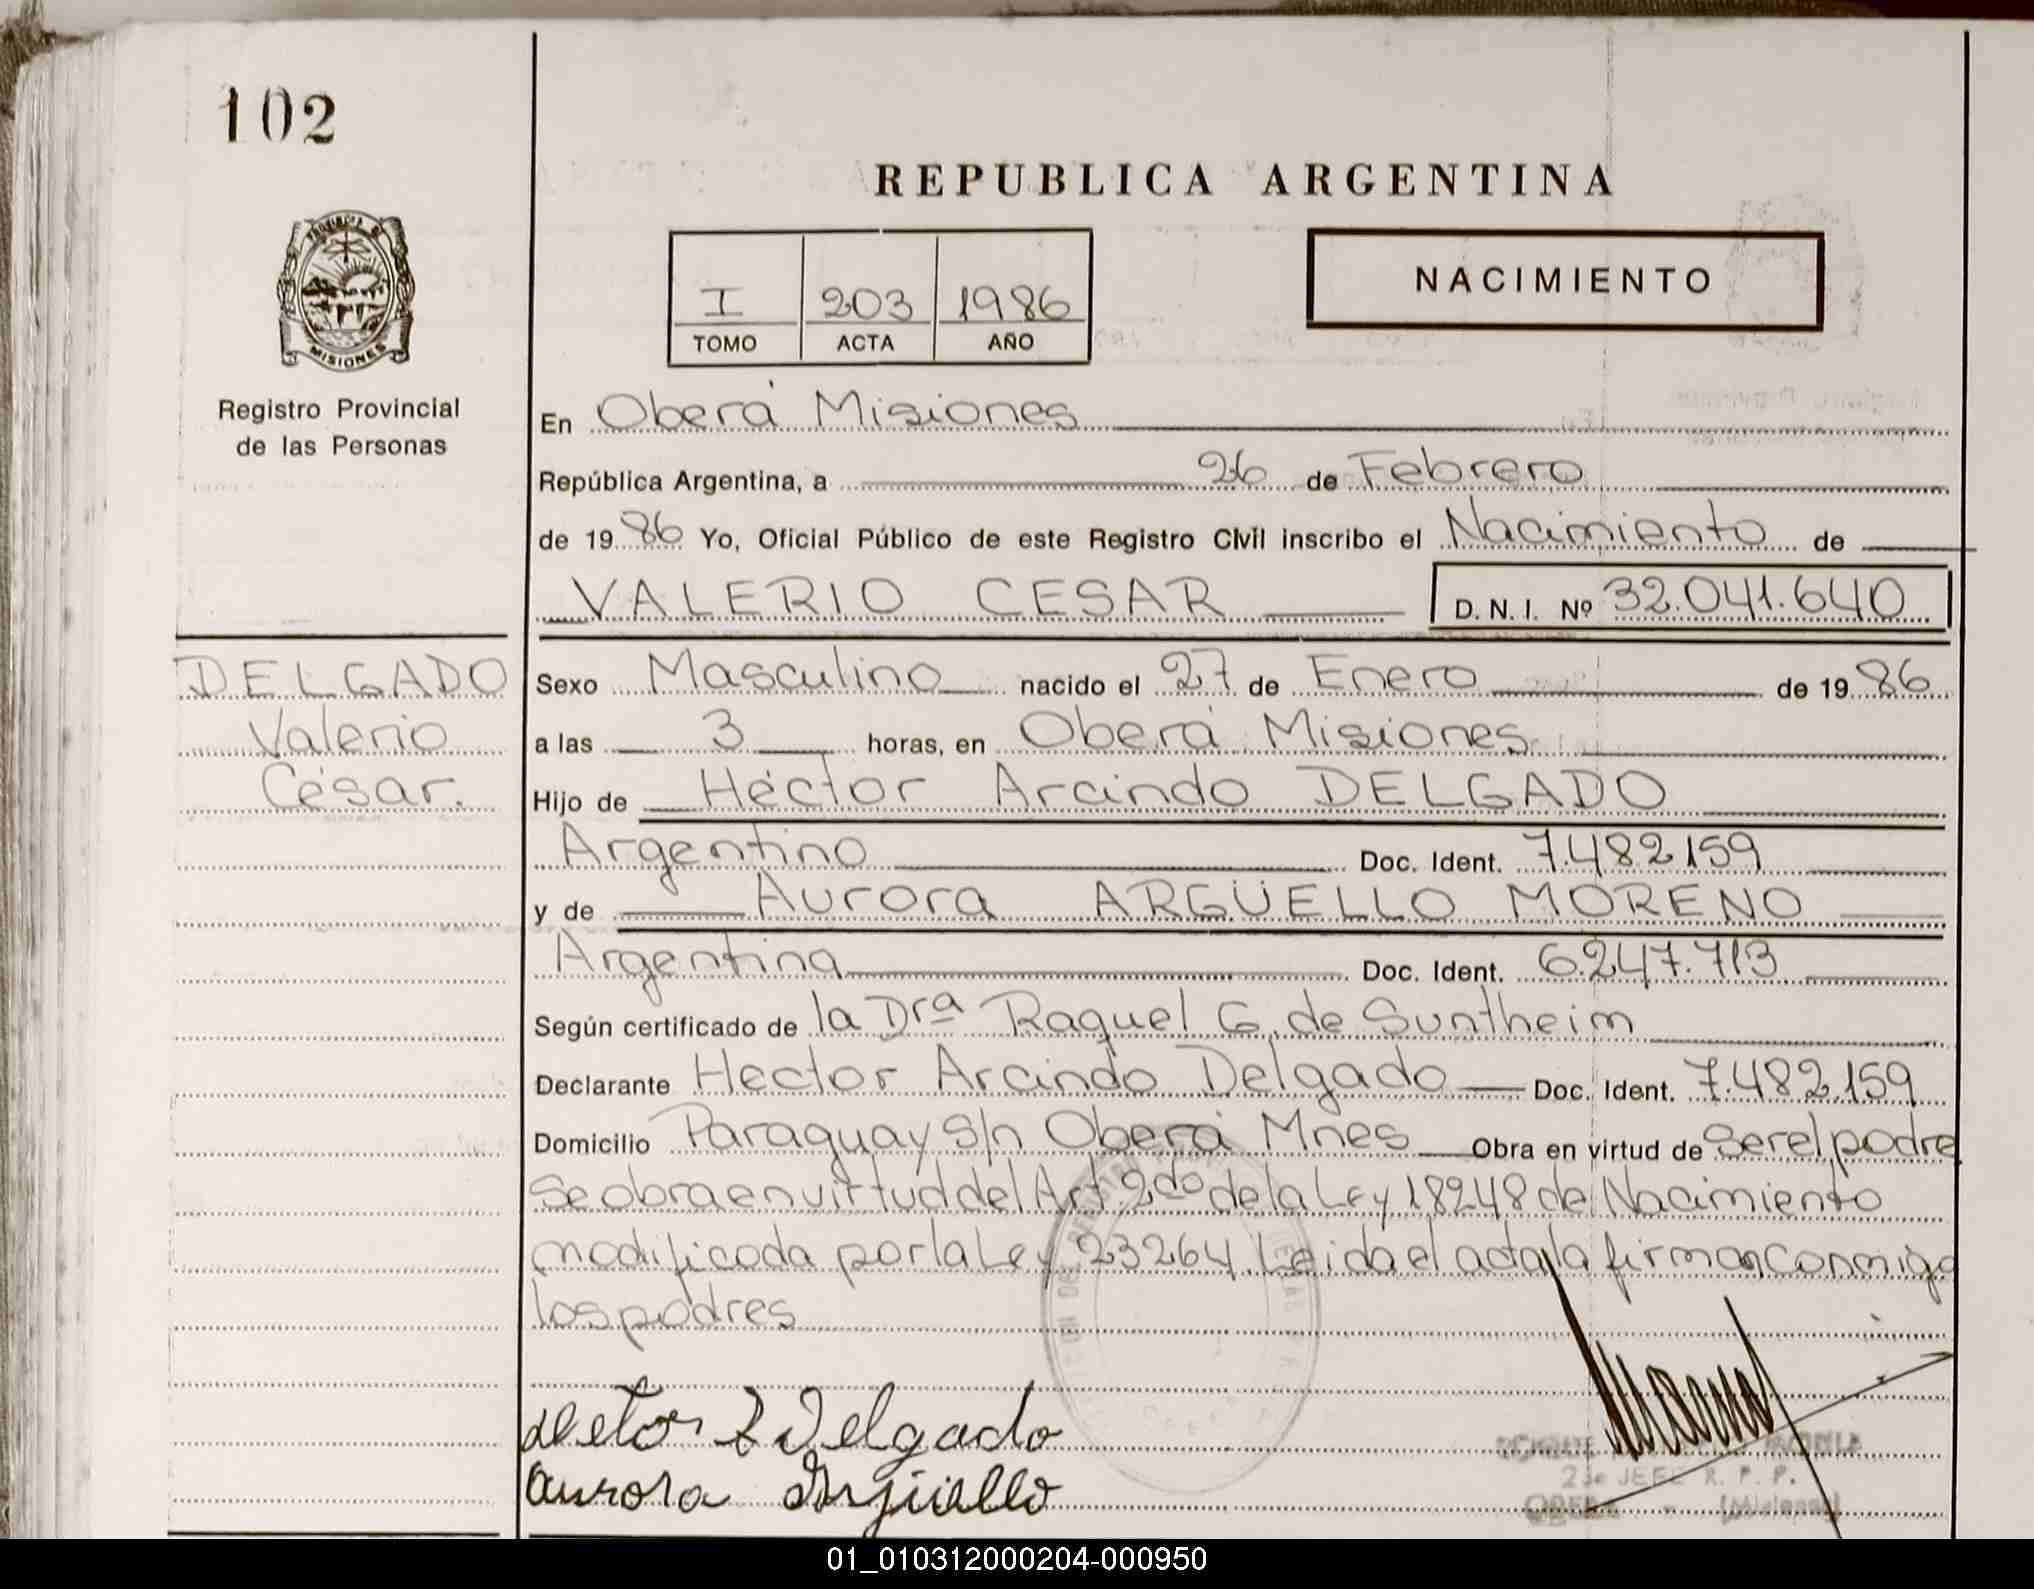 102
REPUBLICA ARGENTINA
PROVINCIA DE
MISIONES
Registro Provincial
de las Personas
I 203 1986
TOMO ACTA AÑO
NACIMIENTO
En Oberá Misiones
República Argentina, a 26 de Febrero
de 19 86 Yo, Oficial Público de este Registro Civil inscribo el Nacimiento de
VALERIO CESAR D. N. I. Nº 32.041.640
DELGADO
Valerio
César.
Sexo Masculino nacido el 27 de Enero de 19 86
a las 3 horas, en Oberá Misiones
Hijo de Héctor Arcindo DELGADO
Argentino Doc. Ident. 7.482159
y de Aurora ARGÜELLO MORENO
Argentina Doc. Ident. 6.247.713
Según certificado de la Dra Raquel G. de Suntheim
Declarante Hector Arcindo Delgado Doc. Ident. 7.482.159
Domicilio Paraguay s/n Oberá Mnes Obra en virtud de ser el padre
Se obra en virtud del Art. 2do de la Ley 18248 de Nacimiento
modificada por la Ley 23264. Leida el acta la firman conmigo
los padres
Hetor A Delgado
Aurora Argüello
2do JEFE R. P. P.
OBERA - (Misiones)
01_010312000204-000950